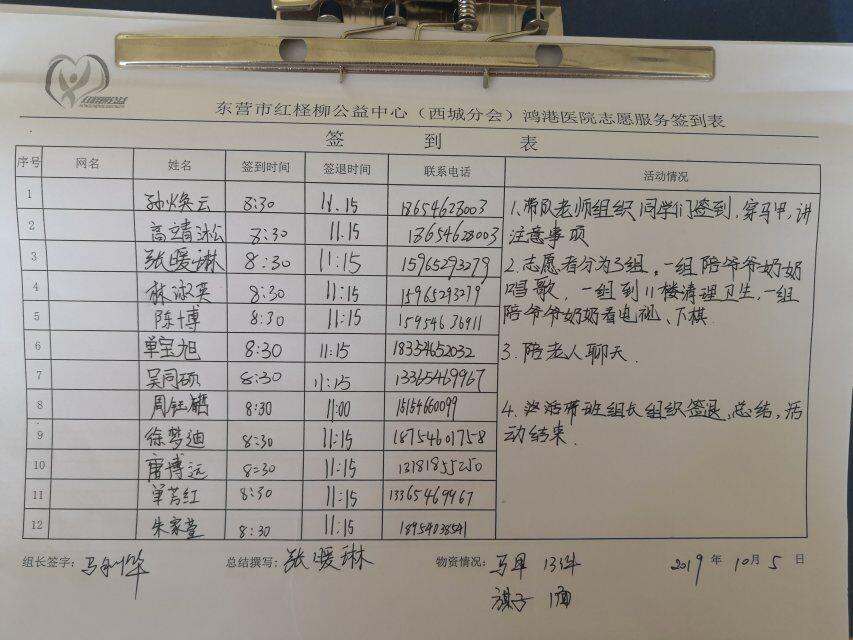 东营市红柽柳公益中心（西城分会）鸿港医院志愿服务签到表
签 到 表
序号 网名 姓名 签到时间 签退时间 联系电话 活动情况
1 孙焕云 8:30 11.15 18654628003
2 高靖淞 8:30 11.15 18654628003
3 张暖琳 8:30 11:15 15965293279
4 林淑英 8:30 11:15 15965293279
5 陈博 8:30 11:15 15954636911
6 单宝旭 8:30 11:15 18354652032
7 吴同硕 8:30 11:15 13365469967
8 周钰 8:30 11:00 15154660099
9 徐梦迪 8:30 11:15 18754601758
10 唐博远 8:30 11:15 13181855250
11 单芳红 8:30 11:15 13365469967
12 朱家萱 8:30 11:15 18954038541
1、带队老师组织同学们签到，穿马甲，讲
注意事项
2、志愿者分为3组，一组陪爷爷奶奶
唱歌，一组到11楼清理卫生，一组
陪爷爷奶奶看电视、下棋.
3、陪老人聊天.
4、活带班组长组织签退，总结，活
动结束.
组长签字： 总结撰写：张暖琳 物资情况：马甲 13件 2019 年 10 月 5 日
旗子 1面